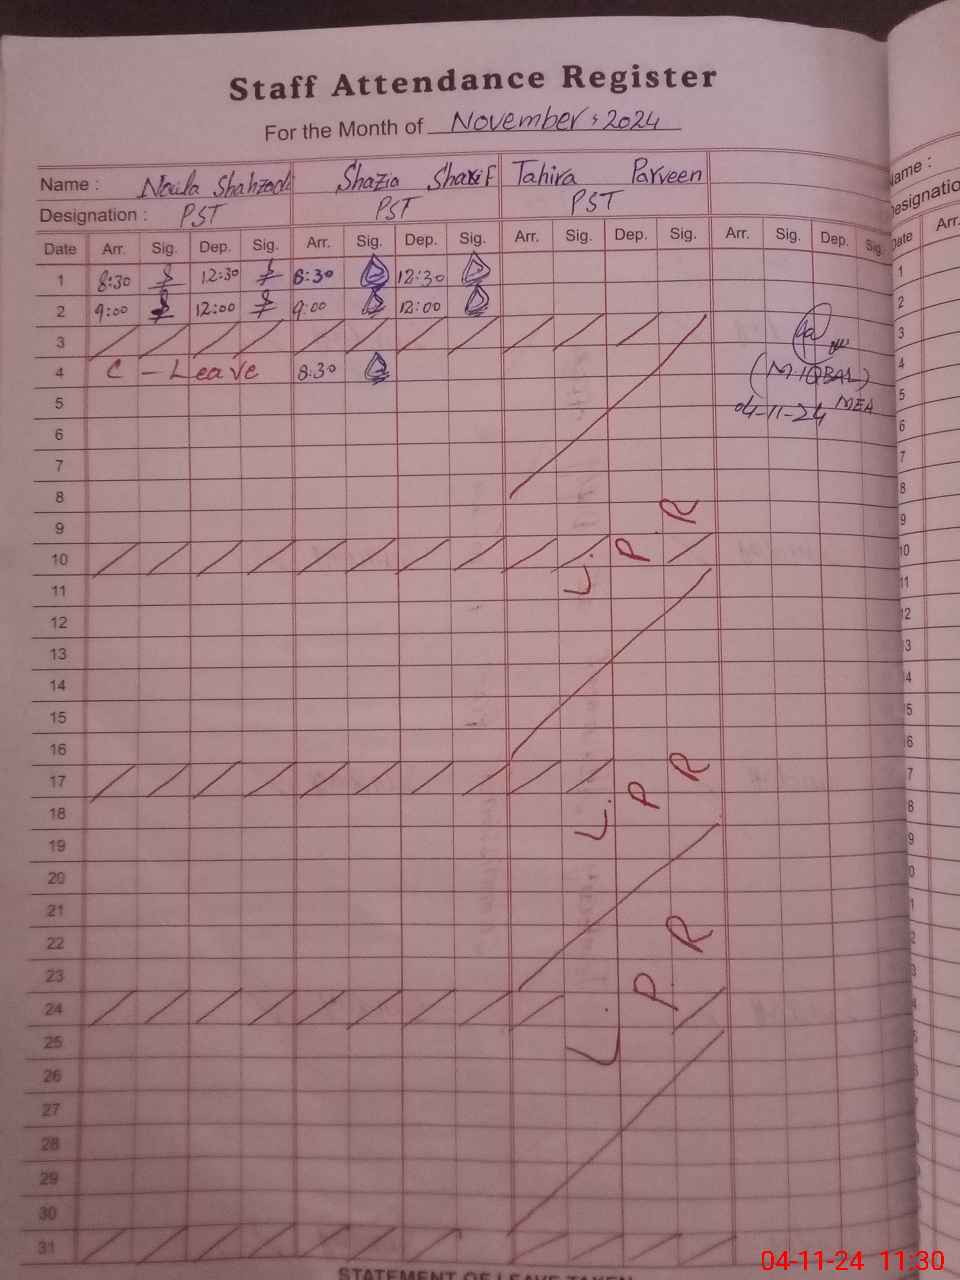 Staff Attendance Register
For the Month of November, 2024
Name : Naila Shahzadi Shazia Sharif Tahira Parveen
Designation : PST PST PST
Date Arr. Sig. Dep. Sig. Arr. Sig. Dep. Sig. Arr. Sig. Dep. Sig. Arr. Sig. Dep. Sig.
1 8:30 12:30 8:30 12:30
2 9:00 12:00 9:00 12:00
3
4 C - Leave 8:30
(M IQBAL)
04-11-24 MEA
5
6
7
8
9
10 L. P. R
11
12
13
14
15
16
17
18 L. P R
19
20
21
22
23
24 L. P R
25
26
27
28
29
30
31
STATEMENT OF LEAVE TAKEN
Name :
Designatio
Date Arr.
1
2
3
4
5
6
7
8
9
10
11
12
13
04-11-24 11:30